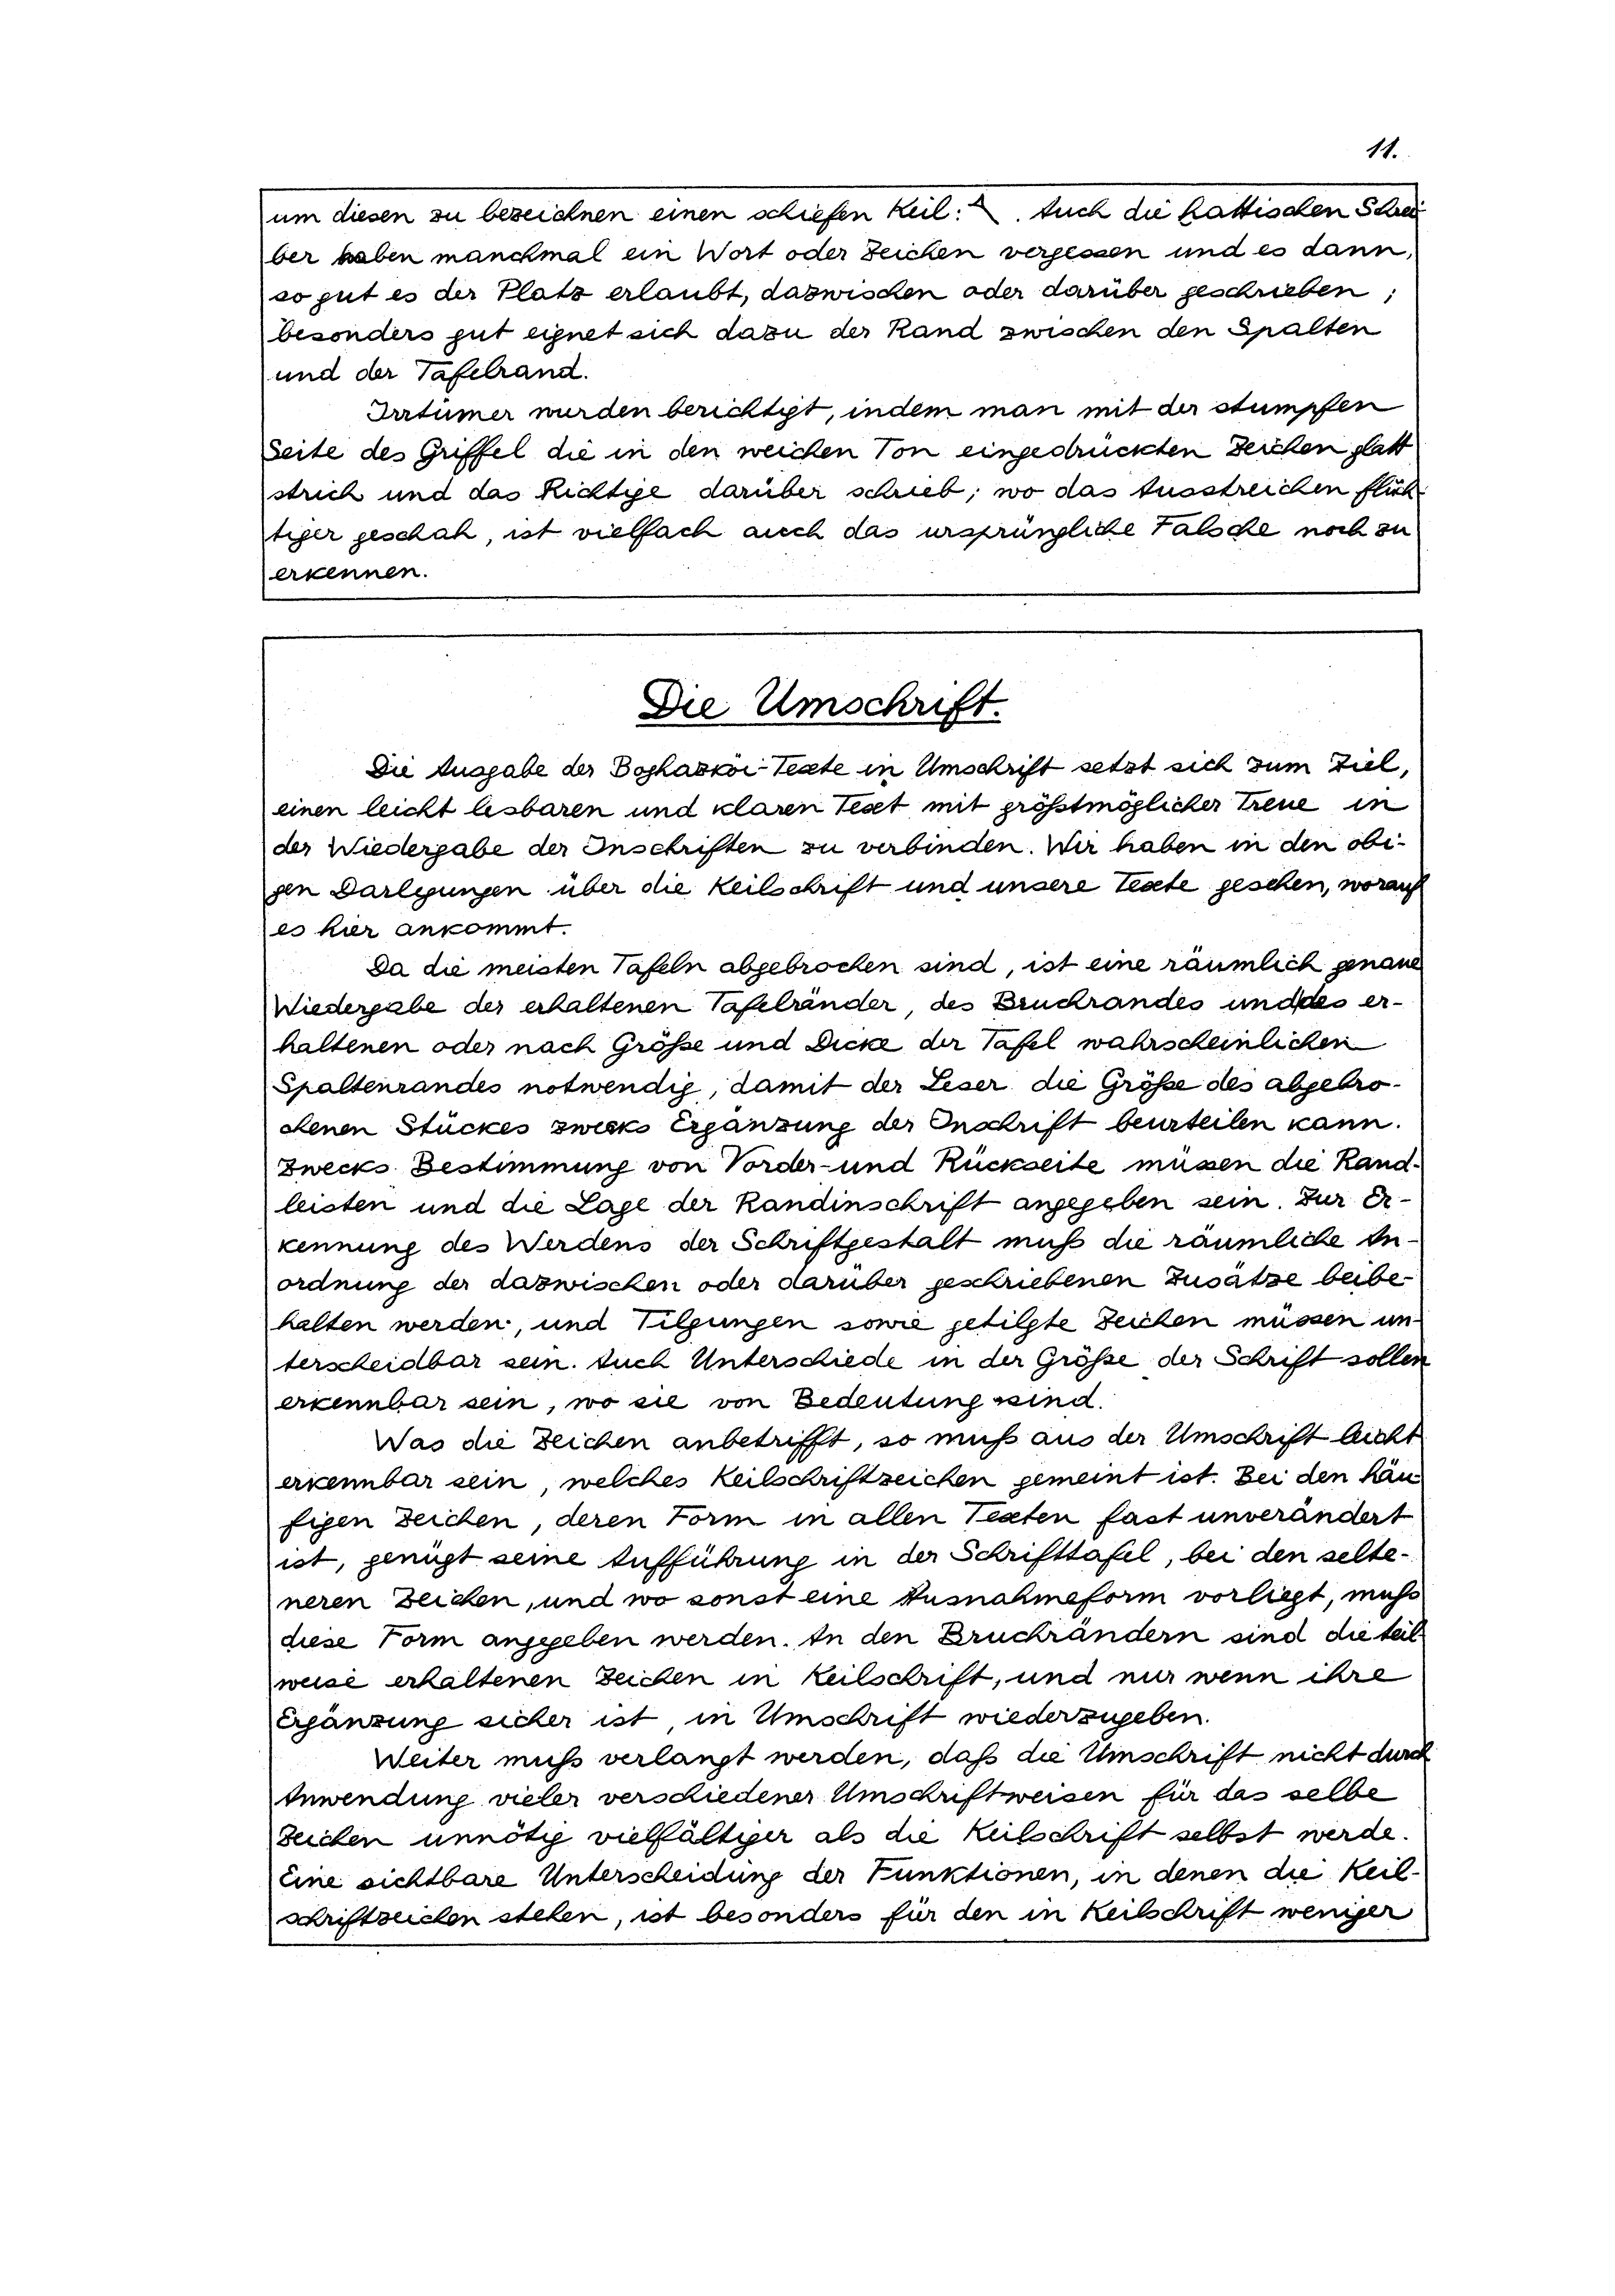 11.
um diesen zu bezeichnen einen schiefen Keil: 𒀹. Auch die hattischen Schrei-
ber haben manchmal ein Wort oder Zeichen vergessen und es dann,
so gut es der Platz erlaubt, dazwischen oder darüber geschrieben ;
besonders gut eignet sich dazu der Rand zwischen den Spalten
und der Tafelrand.
Irrtümer wurden berichtigt, indem man mit der stumpfen
Seite des Griffel die in den weichen Ton eingedrückten Zeichen glatt
strich und das Richtige darüber schrieb; wo das Ausstreichen flüch-
tiger geschah, ist vielfach auch das ursprüngliche Falsche noch zu
erkennen.
Die Umschrift.
Die Ausgabe der Boghazköi-Texte in Umschrift setzt sich zum Ziel,
einen leicht lesbaren und klaren Text mit größtmöglicher Treue in
der Wiedergabe der Inschriften zu verbinden. Wir haben in den obi-
gen Darlegungen über die Keilschrift und unsere Texte gesehen, worauf
es hier ankommt.
Da die meisten Tafeln abgebrochen sind, ist eine räumlich genaue
Wiedergabe der erhaltenen Tafelränder, des Bruchrandes und des er-
haltenen oder nach Größe und Dicke der Tafel wahrscheinlichen
Spaltenrandes notwendig, damit der Leser die Größe des abgebro-
chenen Stückes zwecks Ergänzung der Inschrift beurteilen kann.
Zwecks Bestimmung von Vorder- und Rückseite müssen die Rand-
leisten und die Lage der Randinschrift angegeben sein. Zur Er-
kennung des Werdens der Schriftgestalt muß die räumliche An-
ordnung der dazwischen oder darüber geschriebenen Zusätze beibe-
halten werden, und Tilgungen sowie getilgte Zeichen müssen un-
terscheidbar sein. Auch Unterschiede in der Größe der Schrift sollen
erkennbar sein, wo sie von Bedeutung sind.
Was die Zeichen anbetrifft, so muß aus der Umschrift leicht
erkennbar sein, welches Keilschriftzeichen gemeint ist. Bei den häu-
figen Zeichen, deren Form in allen Texten fast unverändert
ist, genügt seine Aufführung in der Schrifttafel, bei den selte-
neren Zeichen, und wo sonst eine Ausnahmeform vorliegt, muß
diese Form angegeben werden. An den Bruchrändern sind die teil-
weise erhaltenen Zeichen in Keilschrift, und nur wenn ihre
Ergänzung sicher ist, in Umschrift wiederzugeben.
Weiter muß verlangt werden, daß die Umschrift nicht durch
Anwendung vieler verschiedener Umschriftweisen für das selbe
Zeichen unnötig vielfältiger als die Keilschrift selbst werde.
Eine sichtbare Unterscheidung der Funktionen, in denen die Keil-
schriftzeichen stehen, ist besonders für den in Keilschrift weniger